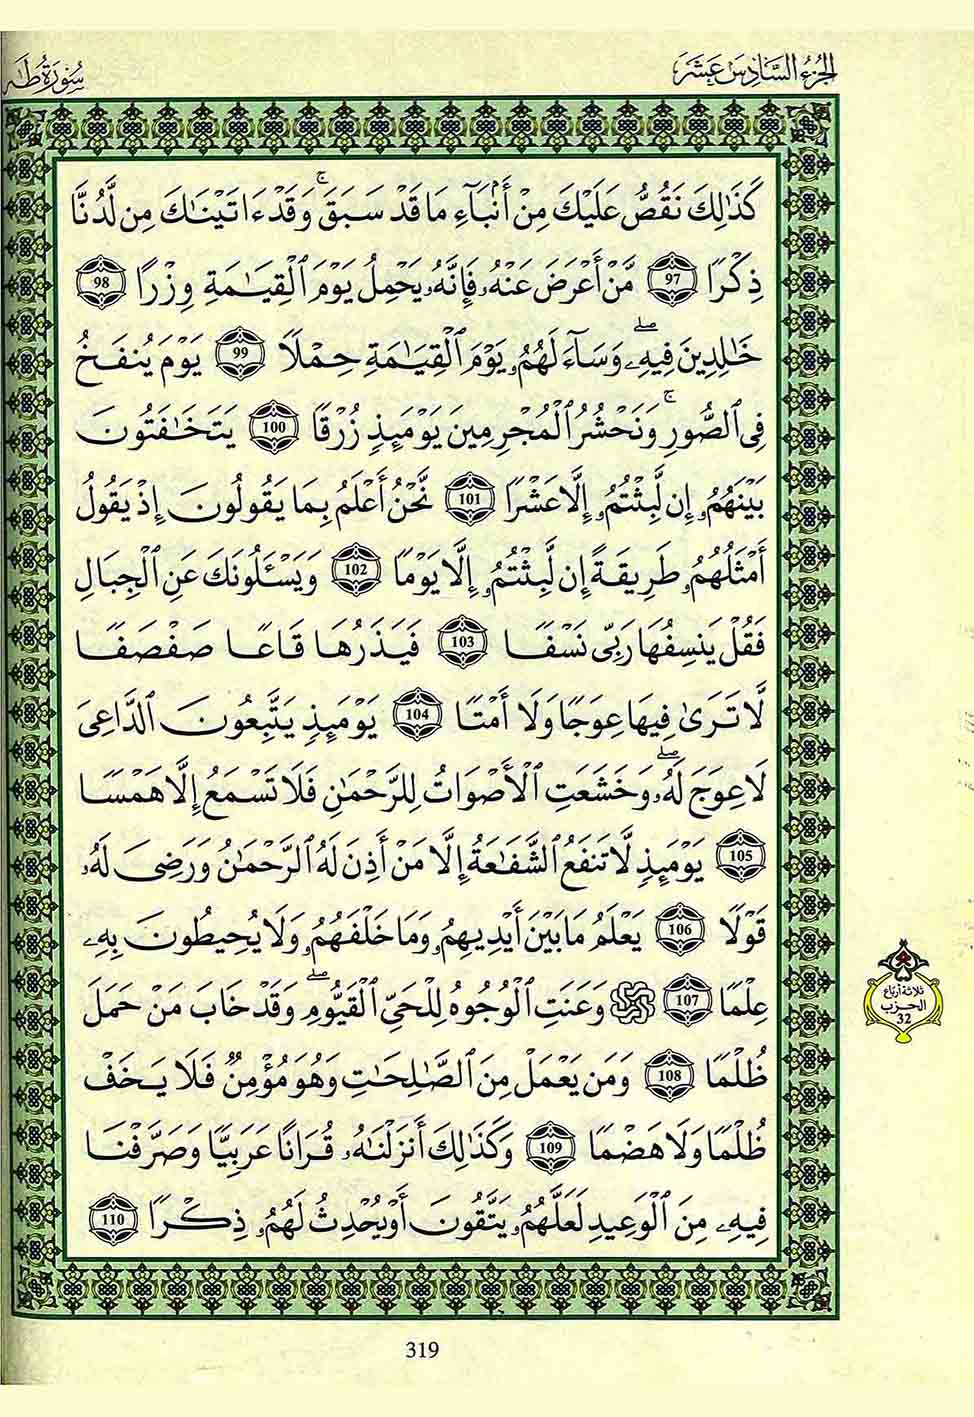 الجُزْءُ السَّادِسَ عَشَرَ
سُورَةُ طَهَ
كَذَٰلِكَ نَقُصُّ عَلَيْكَ مِنْ أَنۢبَآءِ مَا قَدْ سَبَقَۚ وَقَدْ ءَاتَيْنَٰكَ مِن لَّدُنَّا
ذِكْرًا 97 مَّنْ أَعْرَضَ عَنْهُۥ فَإِنَّهُۥ يَحْمِلُ يَوْمَ ٱلْقِيَٰمَةِ وِزْرًا 98
خَٰلِدِينَ فِيهِۦۖ وَسَآءَ لَهُمُۥ يَوْمَ ٱلْقِيَٰمَةِ حِمْلًا 99 يَوْمَ يُنفَخُ
فِى ٱلصُّورِۚ وَنَحْشُرُ ٱلْمُجْرِمِينَ يَوْمَئِذٍ زُرْقًا 100 يَتَخَٰفَتُونَ
بَيْنَهُمُۥ إِن لَّبِثْتُمُۥ إِلَّا عَشْرًا 101 نَّحْنُ أَعْلَمُ بِمَا يَقُولُونَ إِذْ يَقُولُ
أَمْثَلُهُمُۥ طَرِيقَةً إِن لَّبِثْتُمُۥ إِلَّا يَوْمًا 102 وَيَسْـَٔلُونَكَ عَنِ ٱلْجِبَالِ
فَقُلْ يَنسِفُهَا رَبِّى نَسْفًا 103 فَيَذَرُهَا قَاعًا صَفْصَفًا
لَّا تَرَىٰ فِيهَا عِوَجًا وَلَا أَمْتًا 104 يَوْمَئِذٍ يَتَّبِعُونَ ٱلدَّاعِىَ
لَا عِوَجَ لَهُۥۖ وَخَشَعَتِ ٱلْأَصْوَاتُ لِلرَّحْمَٰنِ فَلَا تَسْمَعُ إِلَّا هَمْسًا
105 يَوْمَئِذٍ لَّا تَنفَعُ ٱلشَّفَٰعَةُ إِلَّا مَنْ أَذِنَ لَهُ ٱلرَّحْمَٰنُ وَرَضِىَ لَهُۥ
قَوْلًا 106 يَعْلَمُ مَا بَيْنَ أَيْدِيهِمُۥ وَمَا خَلْفَهُمُۥ وَلَا يُحِيطُونَ بِهِۦ
عِلْمًا 107 وَعَنَتِ ٱلْوُجُوهُ لِلْحَىِّ ٱلْقَيُّومِۖ وَقَدْ خَابَ مَنْ حَمَلَ
ظُلْمًا 108 وَمَن يَعْمَلْ مِنَ ٱلصَّٰلِحَٰتِ وَهُوَ مُؤْمِنٌ فَلَا يَخَفْ
ظُلْمًا وَلَا هَضْمًا 109 وَكَذَٰلِكَ أَنزَلْنَٰهُۥ قُرَانًا عَرَبِيًّا وَصَرَّفْنَا
فِيهِۦ مِنَ ٱلْوَعِيدِ لَعَلَّهُمُۥ يَتَّقُونَ أَوْ يُحْدِثُ لَهُمُۥ ذِكْرًا 110
ثلاثة أرباع
الحزب
32
319